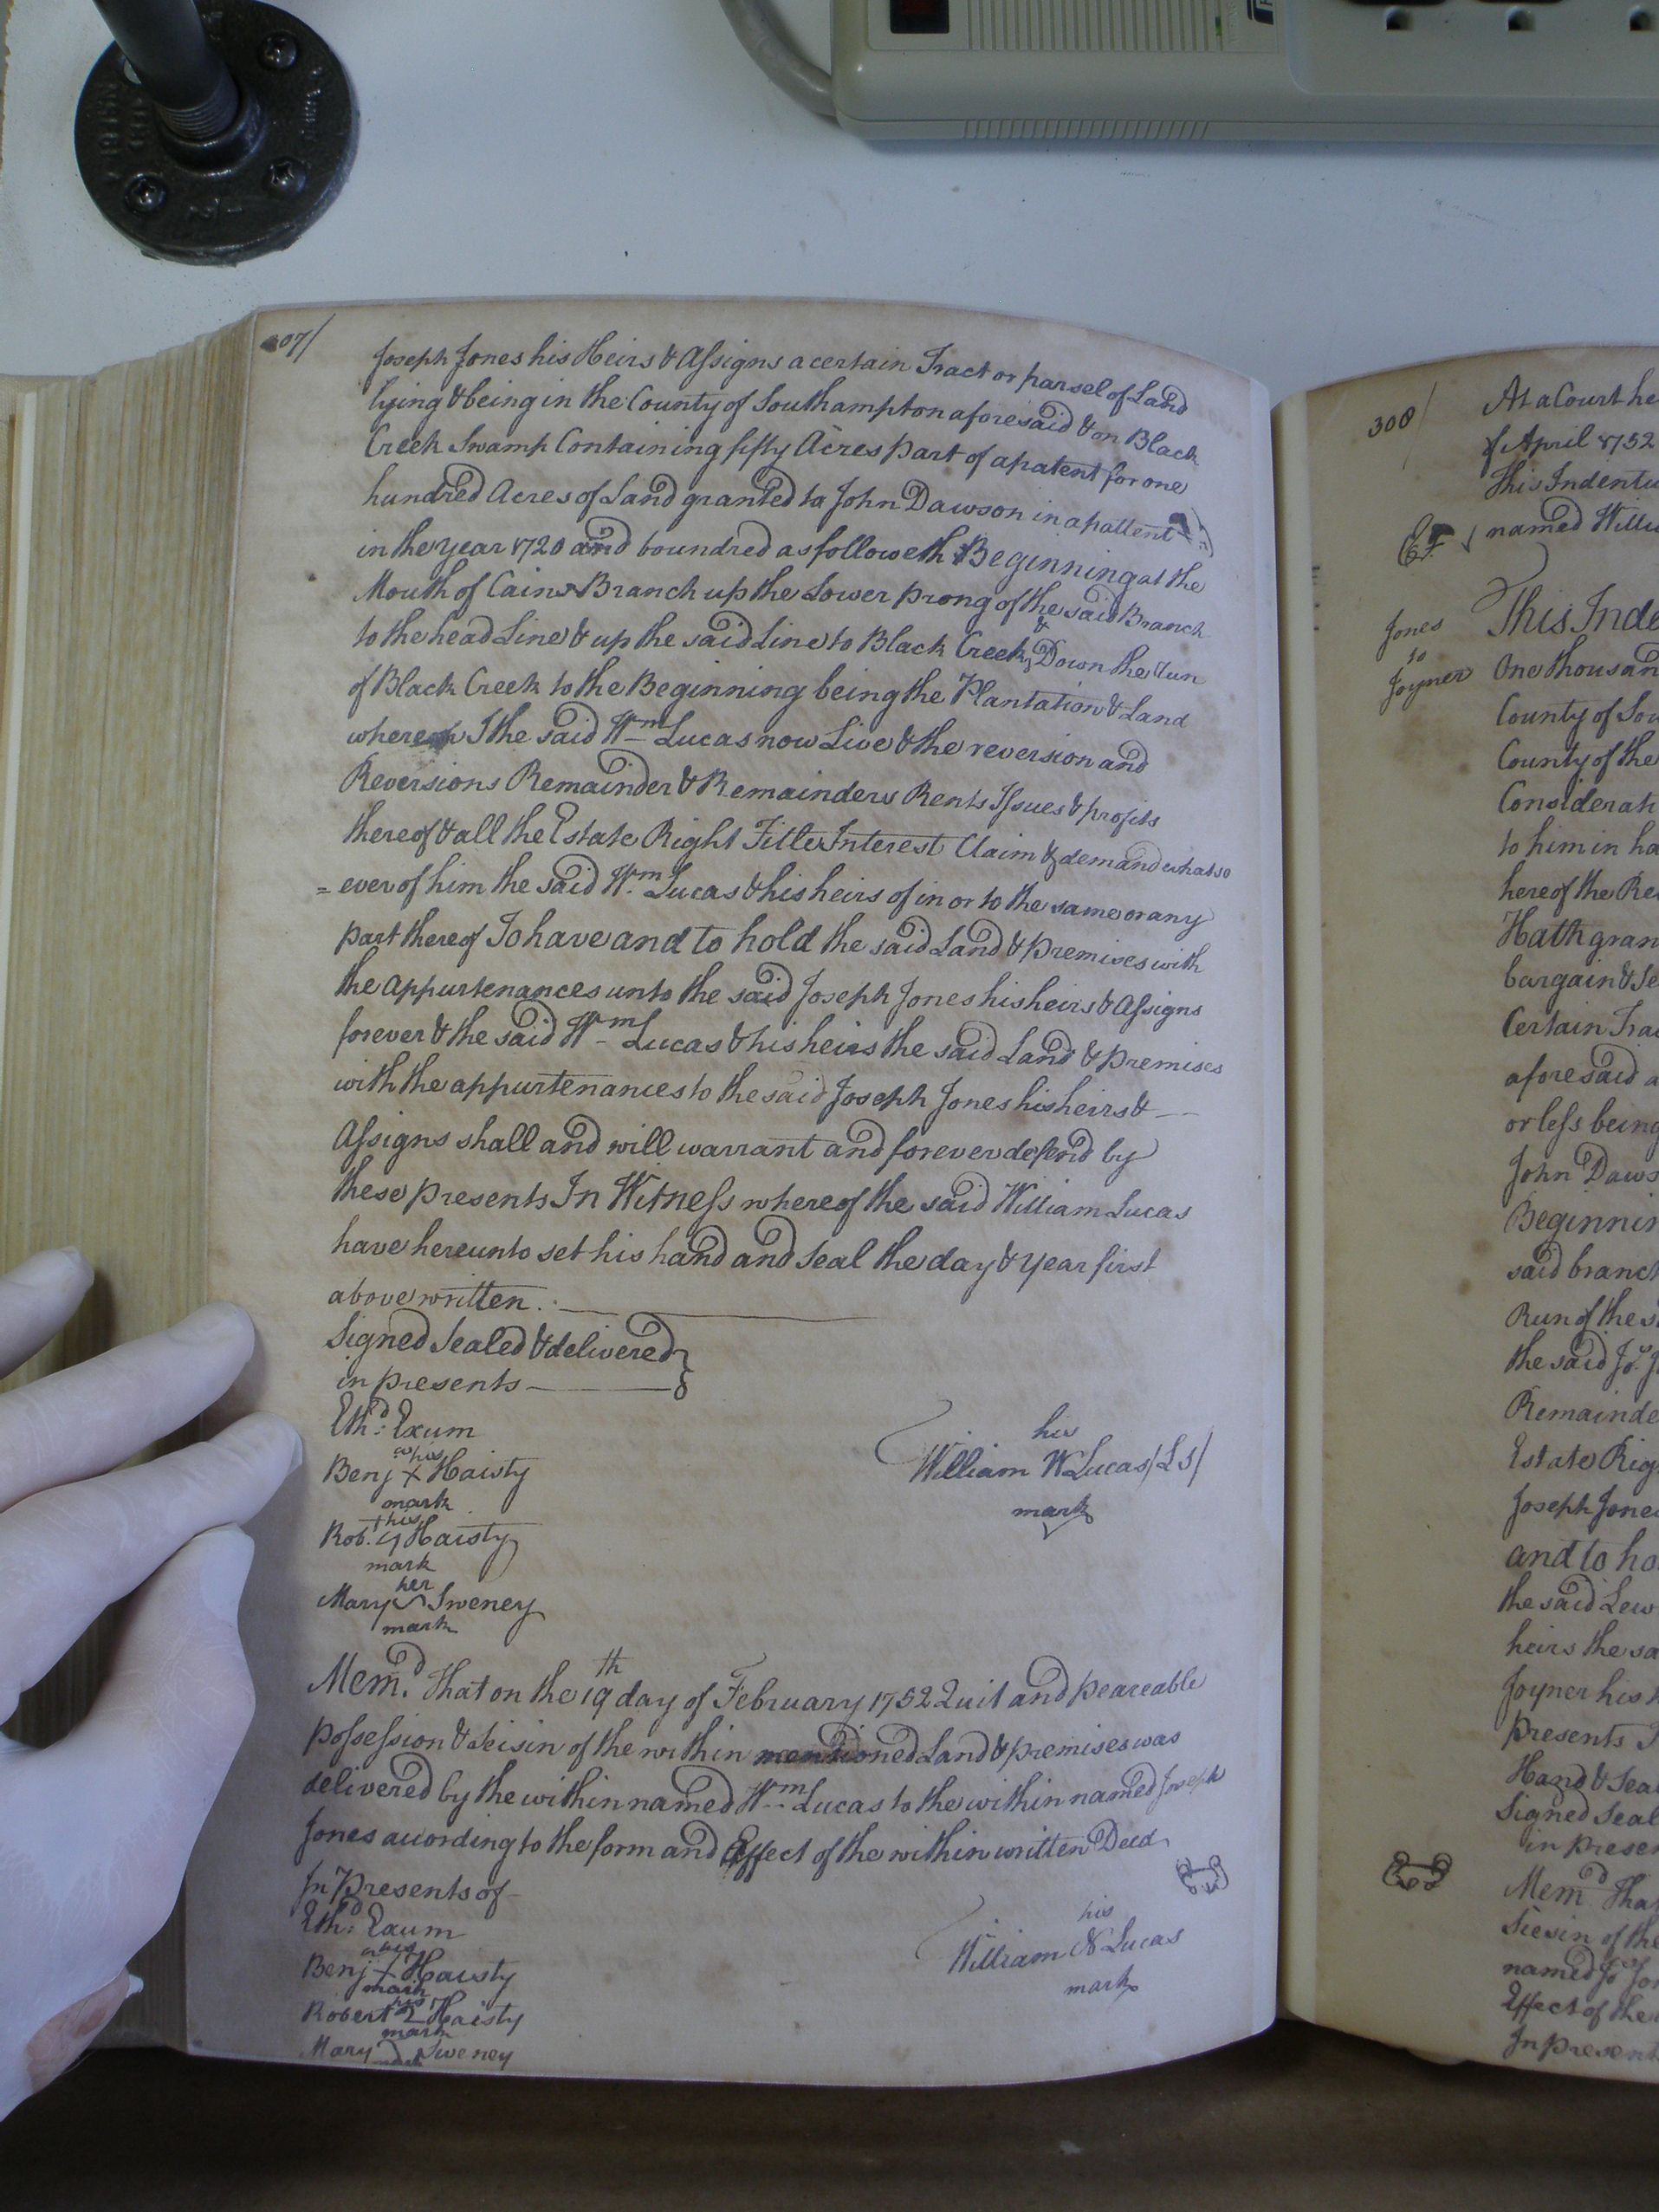 307/
Joseph Jones his Heirs & Assigns a certain Tract or parsel of Land
lying & being in the County of Southampton aforesaid & on Black
Creek Swamp Containing fifty Acres part of a patent for one
hundred Acres of Land granted to John Dawson in a pattent
in the year 1720 and boundred as followeth Beginning at the
Mouth of Cains Branch up the Lower prong of the said Branch
to the head Line & up the said Line to Black Creek & Down the Run
of Black Creek to the Beginning being the Plantation & Land
whereon I the said Wm Lucas now Live & the reversion and
Reversions Remainder & Remainders Rents Issues & profits
thereof & all the Estate Right Title Interest Claim & demand whatso
= ever of him the said Wm. Lucas & his heirs of in or to the same or any
part thereof To have and to hold the said Land & premises with
the appurtenances unto the said Joseph Jones his heirs & Assigns
forever & the said Wm Lucas & his heirs the said Land & premises
with the appurtenances to the said Joseph Jones his heirs &
Assigns shall and will warrant and forever defend by
these presents In Witness whereof the said William Lucas
have hereunto set his hand and Seal the day & year first
above written.
Signed Sealed & delivered
in presents
Ethd: Exum
his
Benj X Haisty
mark
his
Rob. Haisty
mark
her
Mary Sweney
mark
his
William W Lucas /LS/
mark
Memd. That on the 19th day of February 1752 Quit and peaceable
possession & Seisin of the within mentioned Land & premises was
delivered by the within named Wm Lucas to the within named Joseph
Jones according to the form and Effect of the within written Deed
In Presents of
Ethd: Exum
his
Benj X Haisty
mark
his
Robert Haisty
mark
Mary Sweney
his
William W Lucas
mark
308/
At a Court he
of April 1752
This Indentu
named Willi
Jones
to
Joyner
This Inde
One thousan
County of Sou
County of the
Considerati
to him in ha
hereof the Re
Hath gran
bargain & Se
Certain Tra
aforesaid a
or less being
John Daws
Beginnin
said branch
Run of the s
the said Jos. J
Remainde
Estate Rig
Joseph Jone
and to ho
the said Lew
heirs the sa
Joyner his h
presents I
Hand & Sea
Signed Seal
in presen
Memd That
Siesin of the
named Jos Jon
Effect of the
In presents